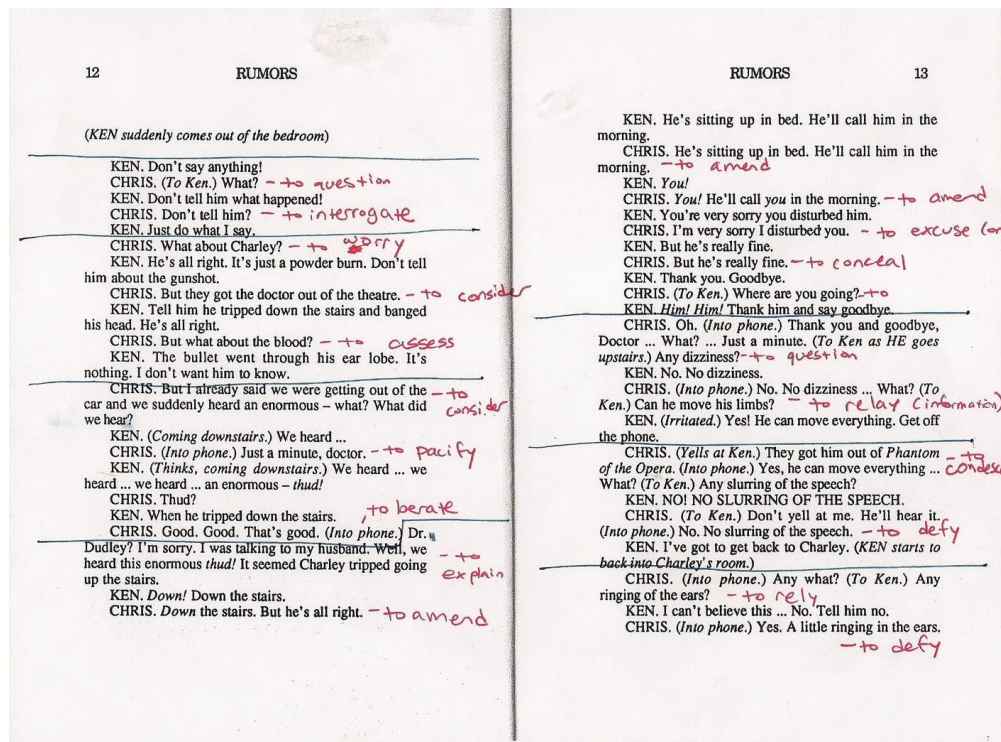 12 RUMORS
(KEN suddenly comes out of the bedroom)
KEN. Don't say anything!
CHRIS. (To Ken.) What? – to question
KEN. Don't tell him what happened!
CHRIS. Don't tell him? – to interrogate
KEN. Just do what I say.
CHRIS. What about Charley? – to worry
KEN. He's all right. It's just a powder burn. Don't tell
him about the gunshot.
CHRIS. But they got the doctor out of the theatre. – to consider
KEN. Tell him he tripped down the stairs and banged
his head. He's all right.
CHRIS. But what about the blood? – to assess
KEN. The bullet went through his ear lobe. It's
nothing. I don't want him to know.
CHRIS. But I already said we were getting out of the – to
car and we suddenly heard an enormous – what? What did consider
we hear?
KEN. (Coming downstairs.) We heard ...
CHRIS. (Into phone.) Just a minute, doctor. – to pacify
KEN. (Thinks, coming downstairs.) We heard ... we
heard ... we heard ... an enormous – thud!
CHRIS. Thud?
KEN. When he tripped down the stairs. to berate
CHRIS. Good. Good. That's good. (Into phone.) Dr.
Dudley? I'm sorry. I was talking to my husband. Well, we
heard this enormous thud! It seemed Charley tripped going – to
up the stairs. explain
KEN. Down! Down the stairs.
CHRIS. Down the stairs. But he's all right. – to amend
RUMORS 13
KEN. He's sitting up in bed. He'll call him in the
morning.
CHRIS. He's sitting up in bed. He'll call him in the
morning. – to amend
KEN. You!
CHRIS. You! He'll call you in the morning. – to amend
KEN. You're very sorry you disturbed him.
CHRIS. I'm very sorry I disturbed you. – to excuse
KEN. But he's really fine.
CHRIS. But he's really fine. – to conceal
KEN. Thank you. Goodbye.
CHRIS. (To Ken.) Where are you going? – to
KEN. Him! Him! Thank him and say goodbye.
CHRIS. Oh. (Into phone.) Thank you and goodbye,
Doctor ... What? ... Just a minute. (To Ken as HE goes
upstairs.) Any dizziness? – to question
KEN. No. No dizziness.
CHRIS. (Into phone.) No. No dizziness ... What? (To
Ken.) Can he move his limbs? – to relay (information)
KEN. (Irritated.) Yes! He can move everything. Get off
the phone.
CHRIS. (Yells at Ken.) They got him out of Phantom – to
of the Opera. (Into phone.) Yes, he can move everything ...
What? (To Ken.) Any slurring of the speech?
KEN. NO! NO SLURRING OF THE SPEECH.
CHRIS. (To Ken.) Don't yell at me. He'll hear it.
(Into phone.) No. No slurring of the speech. – to defy
KEN. I've got to get back to Charley. (KEN starts to
back into Charley's room.)
CHRIS. (Into phone.) Any what? (To Ken.) Any
ringing of the ears? – to rely
KEN. I can't believe this ... No. Tell him no.
CHRIS. (Into phone.) Yes. A little ringing in the ears.
– to defy